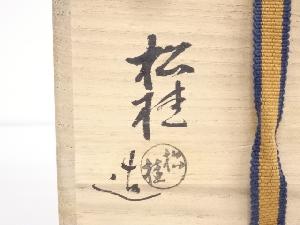 松桂
造
松桂